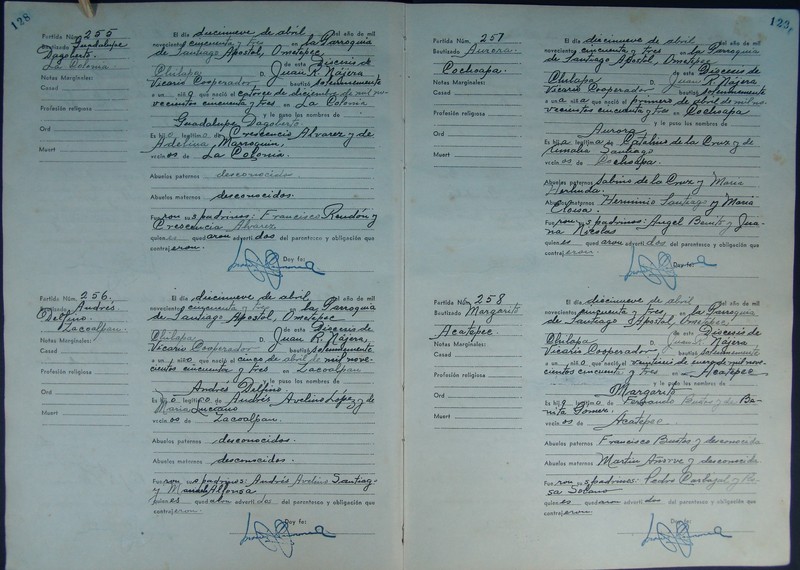 128
Partida Núm. 255
Bautizado Guadalupe
Dagoberto.
La Colonia
Notas Marginales:
Cased
Profesión religiosa
Ord
Muert
El día diecinueve de abril del año de mil
novecientos cincuenta y tres en la Parroquia
de Santiago Apostol, Ometepec
de esta Diocesis de
Chilapa D. Juan R. Nájera
Vicario Cooperador bautisó solemnemente
a un niño que nació el catorce de diciembre de mil no-
vecientos cincuenta y tres en La Colonia
y le puso los nombres de
Guadalupe Dagoberto.
Es hijo legítimo de Crescencio Alvarez y de
Adelina Marroquin,
vecinos de La Colonia.
Abuelos paternos desconocidos.
Abuelos maternos desconocidos.
Fueron sus padrinos: Francisco Rendón y
Crescencia Alvarez
quienes quedaron advertidos del parentesco y obligación que
contrajeron.
Doy fe:
Partida Núm. 256.
Bautizado Andrés
Delfino.
Lacoalpan.
Notas Marginales:
Cased
Profesión religiosa
Ord
Muert
El día diecinueve de abril del año de mil
novecientos cincuenta y tres, en la Parroquia
de Santiago Apostol, Ometepec
de esta Diocesis de
Chilapa D. Juan R. Nájera,
Vicario Cooperador bautisó solemnemente
a un niño que nació el cinco de abril de mil nove-
cientos cincuenta y tres en Lacoalpan
y le puso los nombres de
Andrés Delfino
Es hijo legítimo de Andrés Avelino López y de
María Luciano
vecinos de Lacoalpan.
Abuelos paternos desconocidos.
Abuelos maternos desconocidos.
Fueron sus padrinos: Andrés Avelino Santiago
y Alfonsa
quienes quedaron advertidos del parentesco y obligación que
contrajeron.
Doy fe:
123
Partida Núm. 257
Bautizado Aurora.
Cochoapa.
Notas Marginales:
Cased
Profesión religiosa
Ord
Muert
El día diecinueve de abril del año de mil
novecientos cincuenta y tres, en la Parroquia
de Santiago Apostol, Ometepec
de esta Diocesis de
Chilapa D. Juan R. Nájera
Vicario Cooperador bautisó solemnemente
a una niña que nació el primero de abril de mil no-
vecientos cincuenta y tres en Cochoapa
y le puso los nombres de
Aurora
Es hija legítima de Catalino de la Cruz y de
Amalia Santiago
vecinos de Cochoapa.
Abuelos paternos Sabino de la Cruz y Maria
Herlinda.
Abuelos maternos Herminio Santiago y Maria
Eloisa.
Fueron sus padrinos: Angel Benito y Jua-
na Nicolas
quienes quedaron advertidos del parentesco y obligación que
contrajeron.
Doy fe:
Partida Núm. 258
Bautizado Margarito
Acatepec.
Notas Marginales:
Cased
Profesión religiosa
Ord
Muert
El día diecinueve de abril del año de mil
novecientos cincuenta y tres, en la Parroquia
de Santiago Apostol, Ometepec
de esta Diocesis de
Chilapa D. Juan R. Nájera
Vicario Cooperador bautisó solemnemente
a un niño que nació el veintiuno de enero de mil nove-
cientos cincuenta y tres en Acatepec
y le puso los nombres de
Margarito
Es hijo legítimo de Fernando y de Be-
nita Gomez.
vecinos de Acatepec.
Abuelos paternos Francisco y desconocida
Abuelos maternos Martin Añorve y desconocida
Fueron sus padrinos: Pedro Carbajal y Ro-
sa Solano
quienes quedaron advertidos del parentesco y obligación que
contrajeron.
Doy fe: